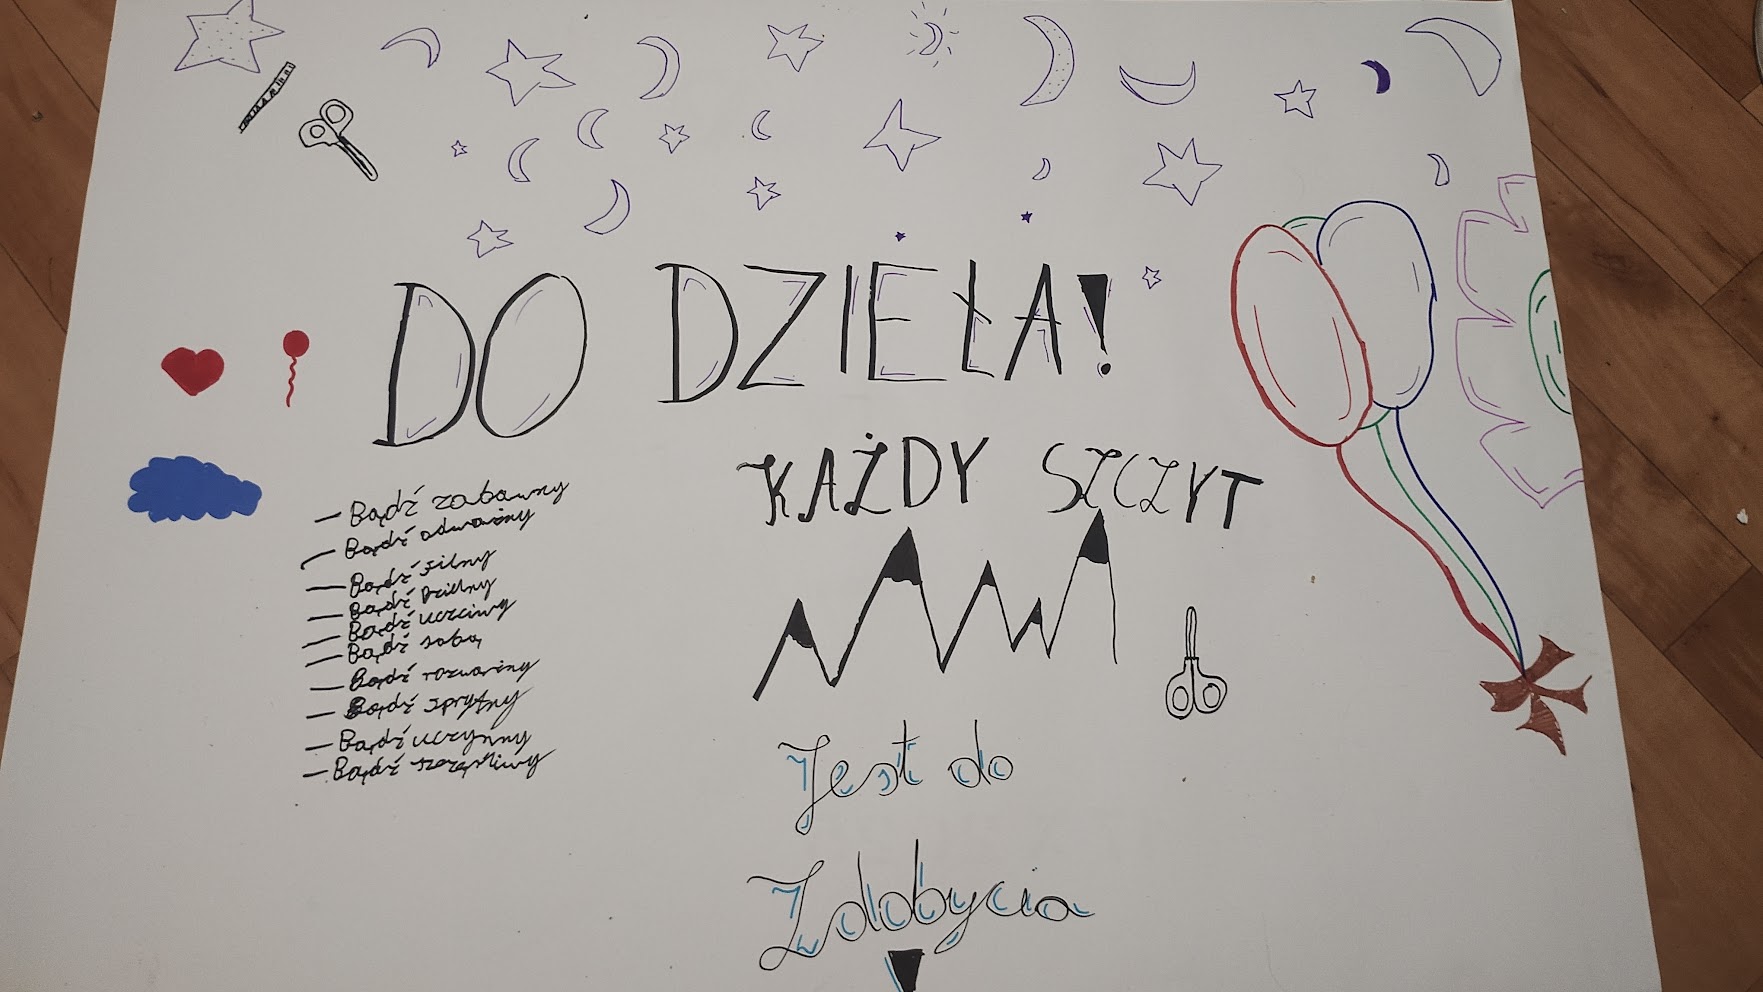 DO DZIEŁA!
KAŻDY SZCZYT
- Bądź zabawny
- Bądź odważny
- Bądź silny
- Bądź Dzielny
- Bądź uczciwy
- Bądź sobą
- Bądź rozważny
- Bądź sprytny
- Bądź uczynny
- Bądź szczęśliwy
Jest do
Zdobycia